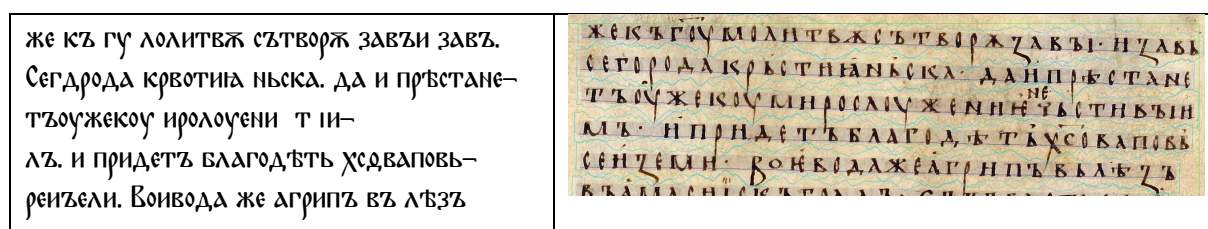 же къ гу лолитвѫ сътворѫ завъи завъ.
Сегдрода крвотиꙗ ньска. да и прѣстане¬
тъоужекоу иролоуени т іи¬
лъ. и придетъ благодѣть хсд҄ваповь¬
реиъели. Воивода же агрипъ въ лѣзъ
жекъгоу҃молитвѫсътворѫꙁавъі· иꙁавь
сегородакрьстиꙗньска· даипрѣстане
тъоужекоумирослоужениѥ не чьстивъіи
мъ· ипридетъблагодѣтьхс҃оваповь
сеиꙁеми· воѥводажеагрипъвълѣꙁъ